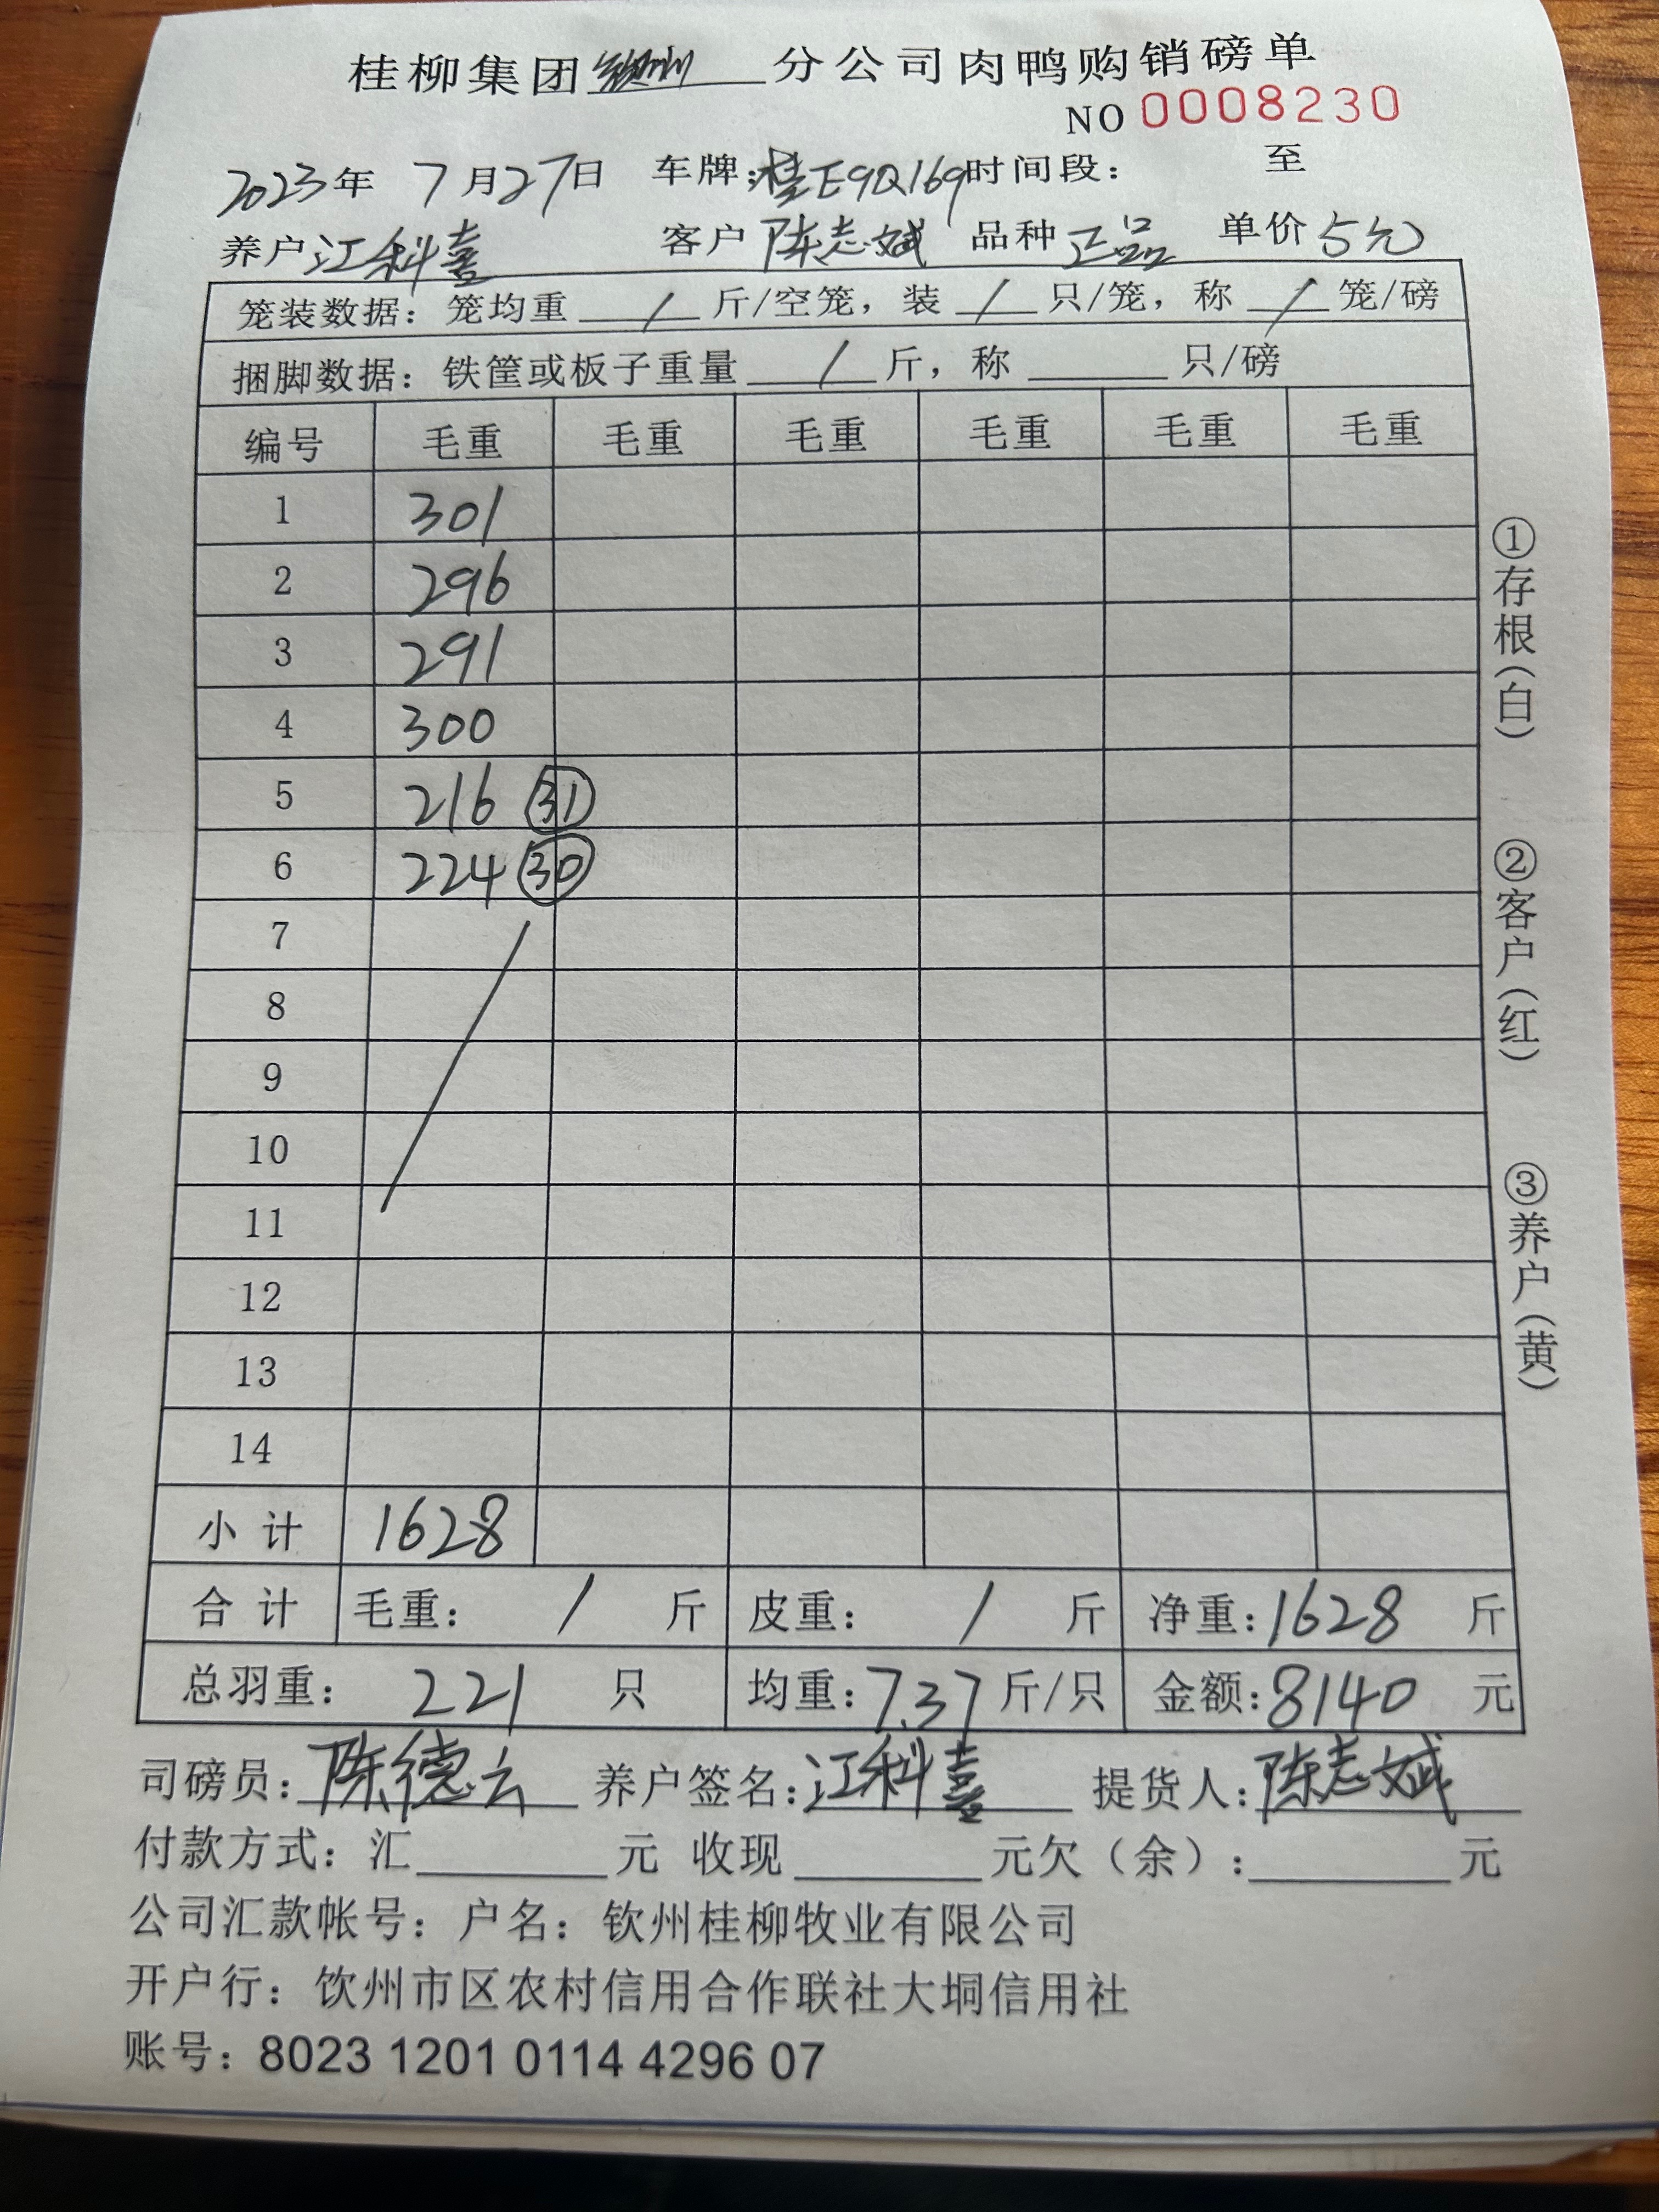 桂柳集团钦州分公司肉鸭购销磅单
NO 0008230
2023年 7月27日 车牌:桂E9Q169时间段: 至
养户江科喜 客户陈志斌 品种正品 单价5元
笼装数据:笼均重 / 斤/空笼,装 / 只/笼,称 / 笼/磅
捆脚数据:铁筐或板子重量 / 斤,称 只/磅
编号 毛重 毛重 毛重 毛重 毛重 毛重
1 301
2 296
3 291
4 300
5 216 31
6 224 30
7
8
9
10
11
12
13
14
小计 1628
合计 毛重: / 斤 皮重: / 斤 净重:1628 斤
总羽重: 221 只 均重:7.37斤/只 金额:8140 元
司磅员:陈德云 养户签名:江科喜 提货人:陈志斌
付款方式:汇 元 收现 元欠(余): 元
公司汇款帐号:户名:钦州桂柳牧业有限公司
开户行:饮州市区农村信用合作联社大垌信用社
账号:8023 1201 0114 4296 07
①存根(白)
②客户(红)
③养户(黄)